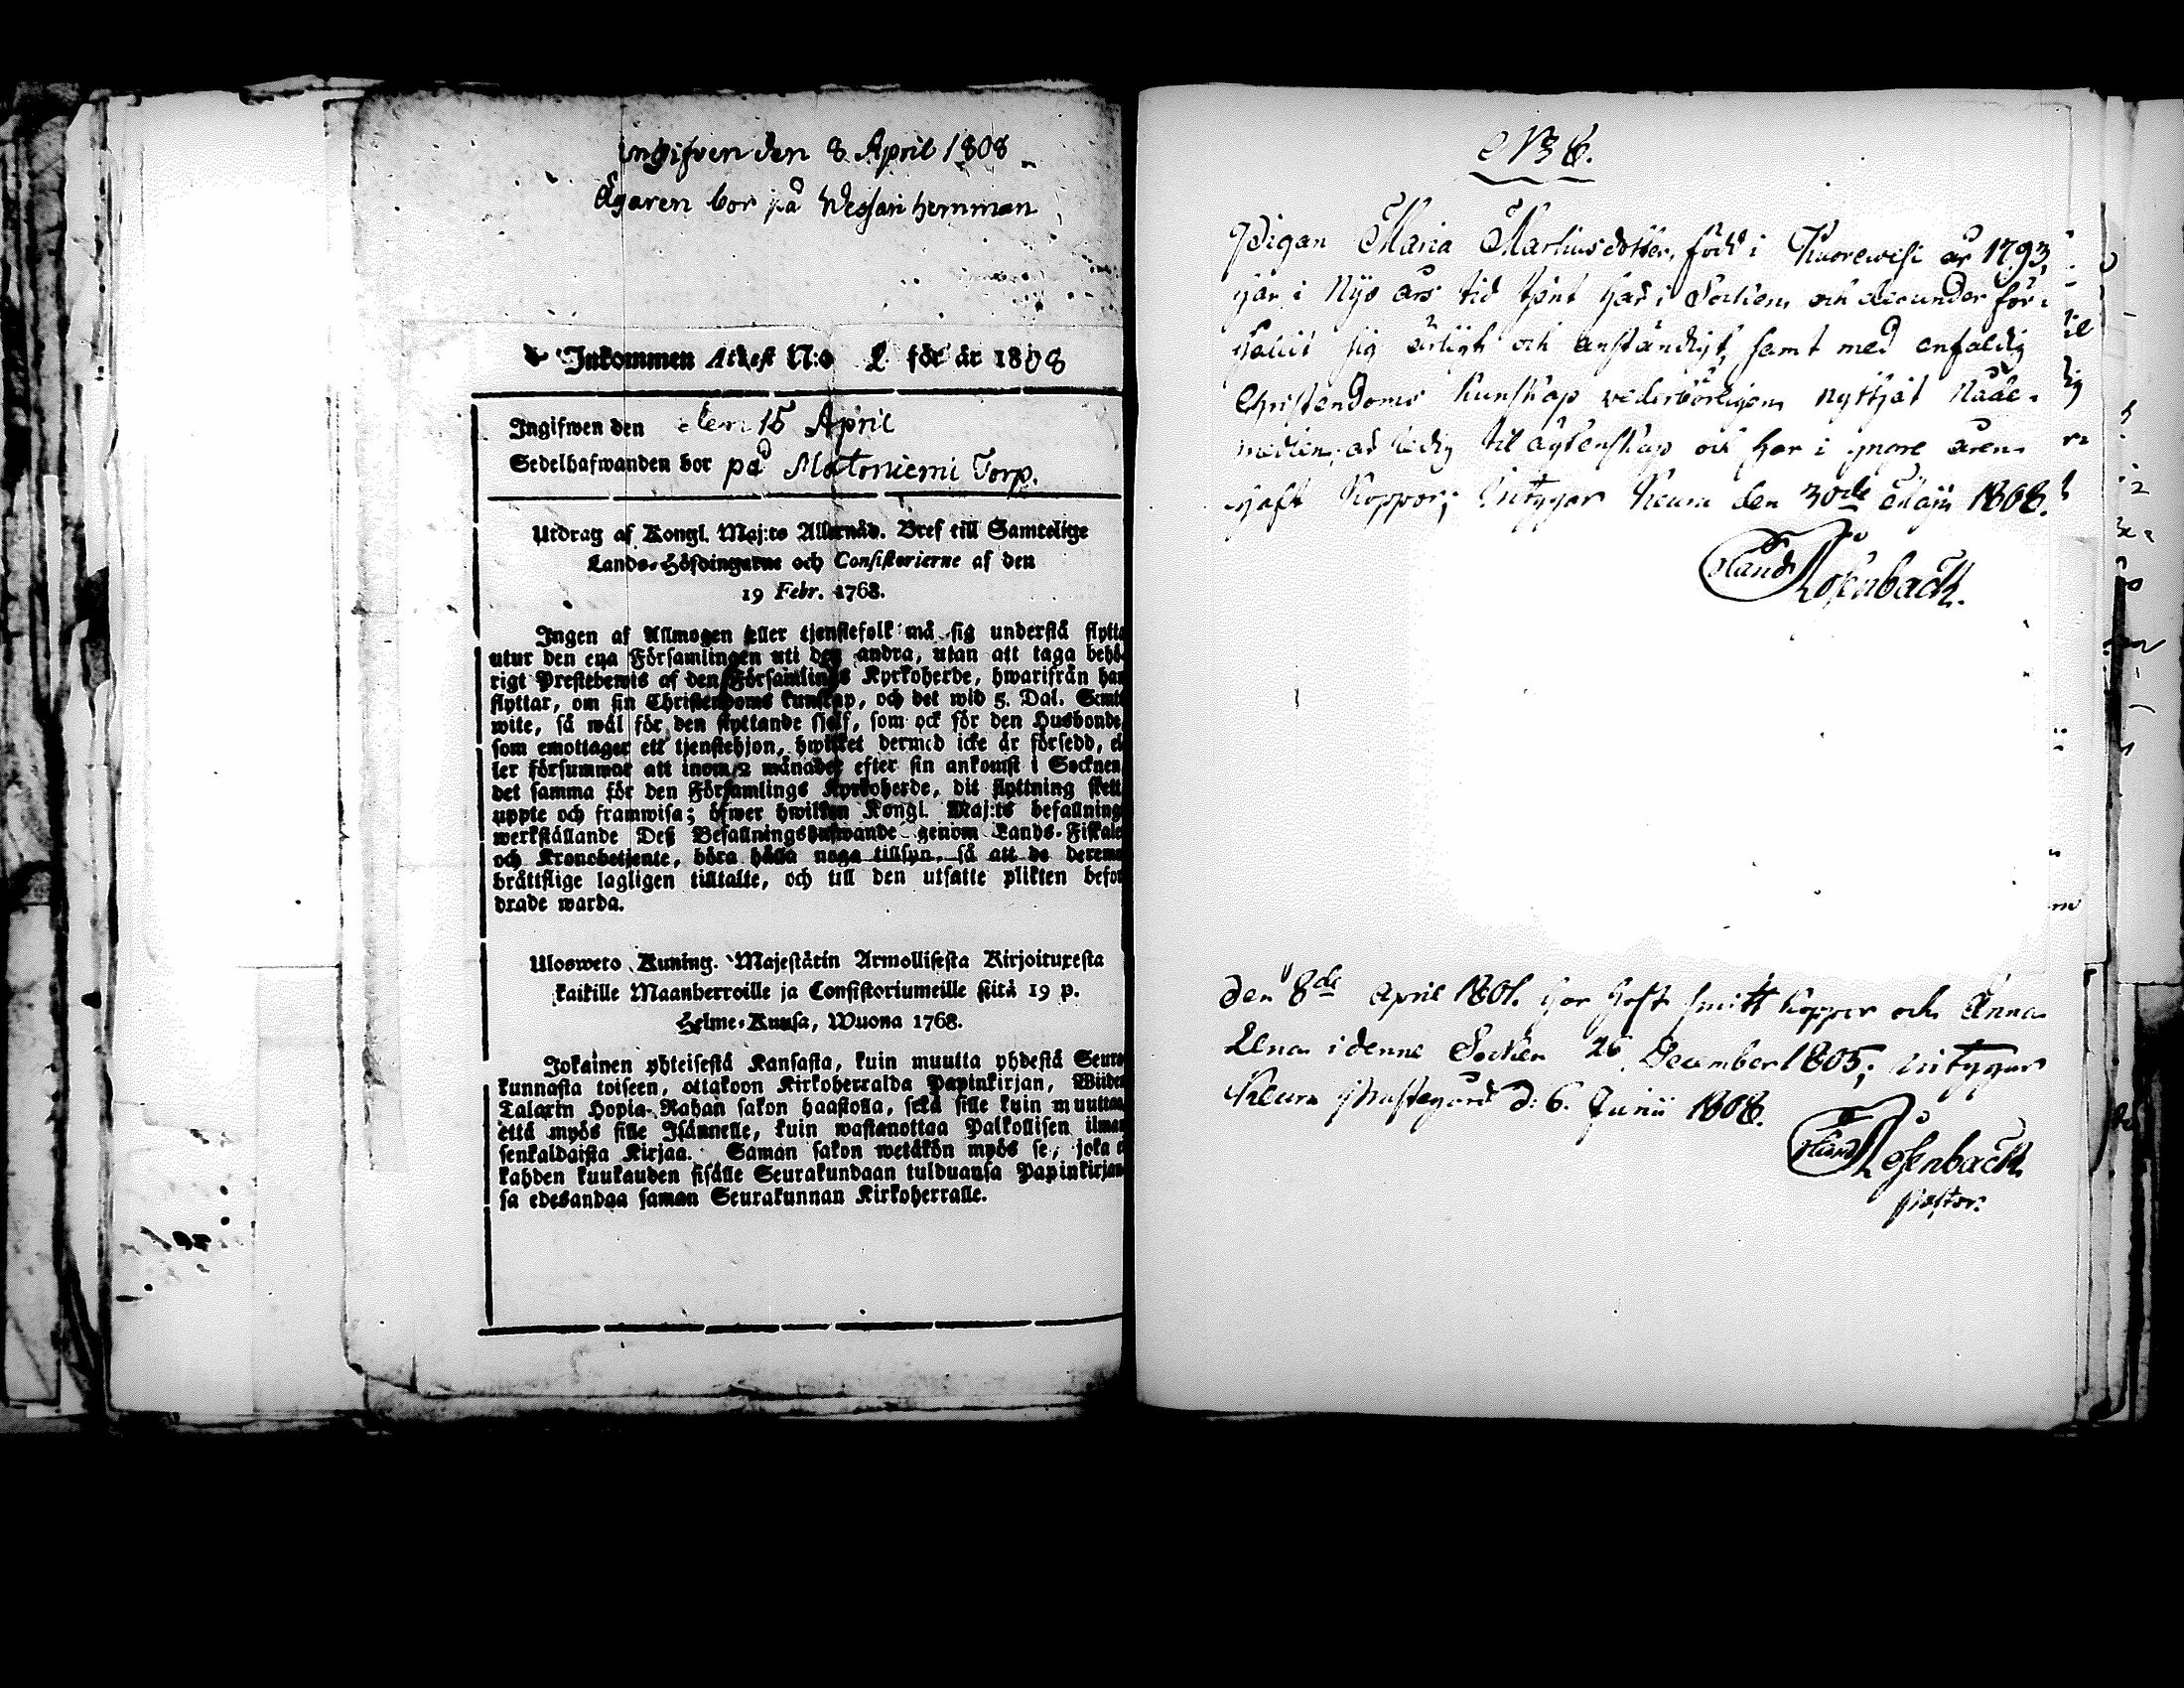 ingifven den 8 April 1808
Ägaren bor på Wessari hemman
Inkommen Attest N:o 2 för år 1808
Ingifwen den den 15 April
Sedelhafwanden bor på Matoniemi Torp.
Utdrag af Kongl. Maj:ts Allernåd. Bref till Samtelige
Lands-Höfdingarne och Consistorierne af den
19 Febr. 1768.
Ingen af Allmogen eller tjenstefolk må sig understå flytta
utur den ena Församlingen uti den andra, utan att taga behö-
rigt Prestebewis af den Församlings Kyrkoherde, hwarifrån han
flyttar, om sin Christendoms kunskap, och det wid 5. Dal. Smts
wite, så wäl för den flyttande sjelf, som ock för den Husbonde,
som emottager ett tjenstehjon, hwilket dermed icke är försedd, el-
ler försummar att inom 2 månader efter sin ankomst i Socknen
det samma för den Församlings Kyrkoherde, dit flyttning skett
uppte och framwisa; öfwer hwilken Kongl. Maj:ts befallning
werkställande Deß Befallningshafwande genom Lands-Fiskale
och Kronobetjente, böra hålla noga tillsyn, så att de derem
bråttslige lagligen tilltalte, och till den utsatte plikten befor
drade warda.
Ulosweto Kuning. Majestätin Armollisesta Kirjoituxesta
kaikille Maanherroille ja Consistoriumeille siitä 19 p.
Helme-Kuusa, Wuona 1768.
Jokainen yhteisestä Kansasta, kuin muutta yhdestä Seura
kunnasta toiseen, ottakoon Kirkoherralda Papinkirjan, Wiiden
Talarin Hopia-Rahan sakon haastolla, sekä sille kuin muuttaa
että myös sille Isännelle, kuin wastanottaa Palkollisen ilman
senkaldaista Kirjaa. Saman sakon wetäkön myös se, joka e
kahden kuukauden sisälle Seurakundaan tulduansa Papinkirjan
sa edesandaa saman Seurakunnan Kirkoherralle.
N 3
Pigan Maria Martinsdotter, född i Kuorewesi år 1793
har i Nijo års tid tjent här i Socknen och derunder för-
hållit sig ärligt och anständigt, samt med enfaldig
Christendoms Kunskap vederbörligen nyttjat Nåde-
medlen; är ledig til ägtenskap och har i yngre åren
haft Koppor; Intygar Keuru den 30de Maji 1808.
Rosenbäck.
den 8de April 1801. har haft smitt Koppor och Anna
Lena i denne Socken 26 December 1805; intygar
Keuru Prästegård d: 6. Junii 1808.
Rosenbäck
Pastor.